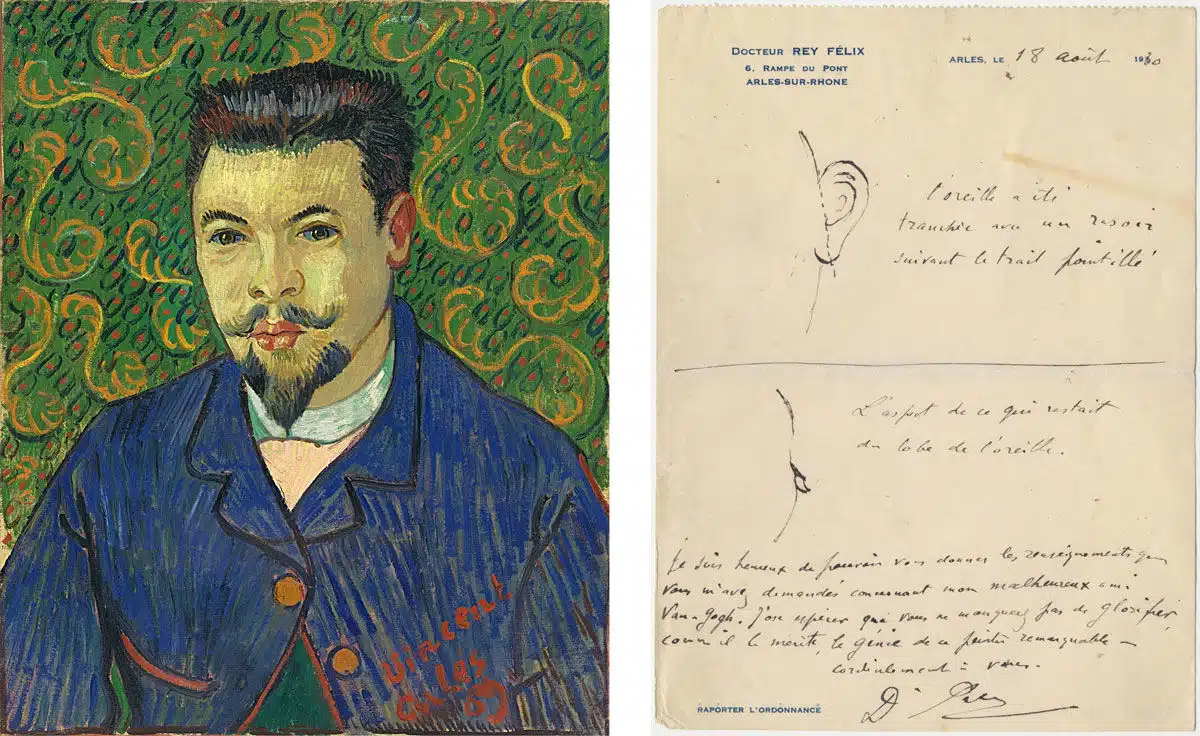 Vincent
Arles
89
DOCTEUR REY FÉLIX
6, RAMPE DU PONT
ARLES-SUR-RHONE
ARLES, LE 18 août 1930
l'oreille a été
tranchée avec un rasoir
suivant le trait pointillé
L'aspect de ce qui restait
du lobe de l'oreille.
Je suis heureux de pouvoir vous donner les renseignements que
vous m'avez demandés concernant mon malheureux ami
Van-Gogh. J'ose espérer que vous ne manquerez pas de glorifier,
comme il le mérite, le génie de ce peintre remarquable –
cordialement à vous.
Dr Rey
RAPORTER L'ORDONNANCE